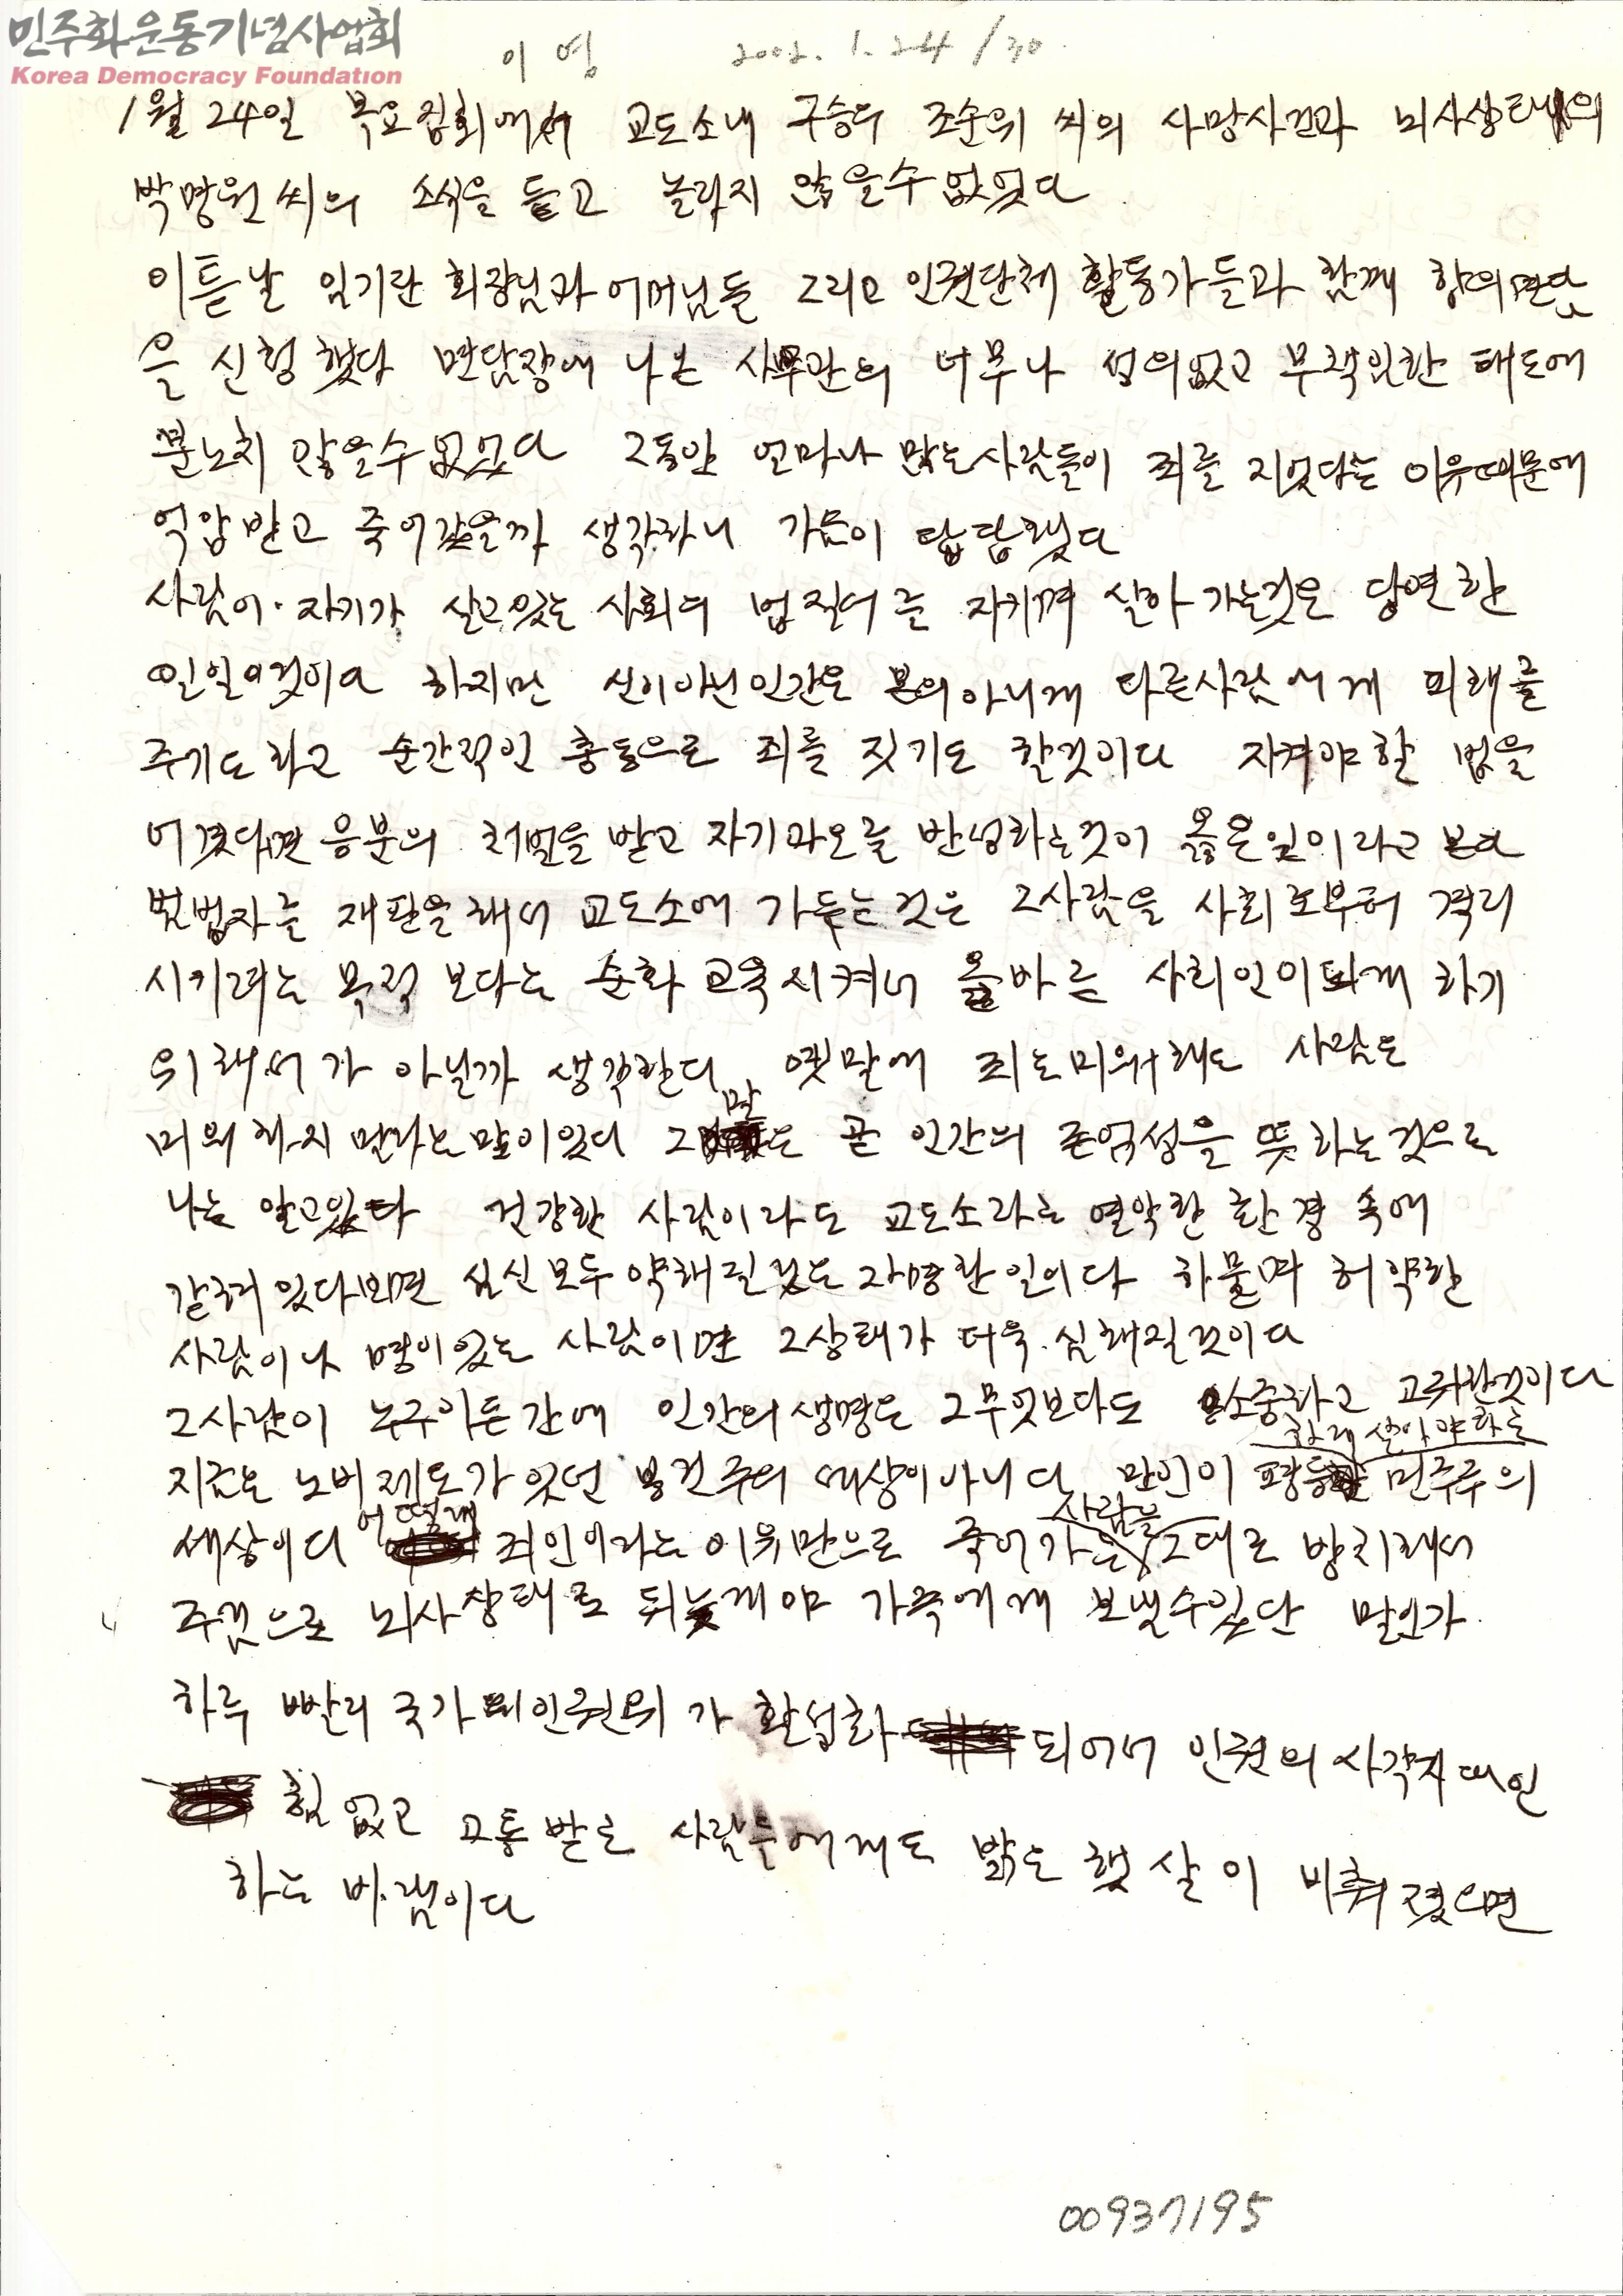 민주화운동기념사업회
Korea Democracy Foundation
이 영 2002. 1. 24/30
1월 24일 목요집회에서 교도소내 구승우 조순위 씨의 사망사건과 뇌사상태의
박명원 씨의 소식을 듣고 놀랍지 않을수 없었다
이튿날 임기란 회장님과 어머님들 그리고 인권단체 활동가들과 함께 항의면담
을 신청했다 면담장에 나온 사무관의 너무나 성의없고 무책임한 태도에
분노치 않을수 없었다 그동안 얼마나 많은사람들이 죄를 지었다는 이유때문에
억압받고 죽어갔을까 생각하니 가슴이 답답했다
사람이 자기가 살고있는 사회의 법질서를 지키며 살아 가는것은 당연한
일일것이다 하지만 신이아닌인간은 본의아니게 다른사람에게 피해를
주기도하고 순간적인 충동으로 죄를 짓기도 할것이다 지켜야할 법을
어겼다면 응분의 처벌을 받고 자기과오를 반성하는것이 옳은일이라고 본다
범법자를 재판을해서 교도소에 가두는것은 그사람을 사회로부터 격리
시키려는 목적 보다는 순화 교육시켜서 올바른 사회인이되게 하기
위해서가 아닐까 생각한다 옛말에 죄는미워해도 사람은
미워하지 말라는말이있다 그말은 곧 인간의 존엄성을 뜻하는것으로
나는 알고있다 건강한 사람이라도 교도소라는 열악한 환경 속에
갇혀있다보면 심신모두 약해질것은 자명한일이다 하물며 허약한
사람이나 병이있는 사람이면 그상태가 더욱 심해질것이다
그사람이 누구이든간에 인간의생명은 그무엇보다도 소중하고 고귀한것이다
지금은 노비제도가 있던 봉건주의 세상이아니다 만인이 평등하게 살아야하는 민주주의
세상이다 어떻게 죄인이라는 이유만으로 죽어가는 사람을 그대로 방치해서
주검으로 뇌사상태로 뒤늦게야 가족에게 보낼수있단 말인가
하루 빨리 국가인권위가 활성화 되어서 인권의 사각지대인
힘없고 고통받는 사람들에게도 밝은 햇살이 비춰졌으면
하는 바램이다
00937195